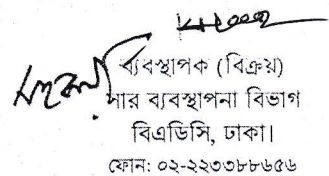 ব্যবস্থাপক (বিক্রয়)
সার ব্যবস্থাপনা বিভাগ
বিএডিসি, ঢাকা।
ফোন: ০২-২২৩৩৮৮৬৫৬